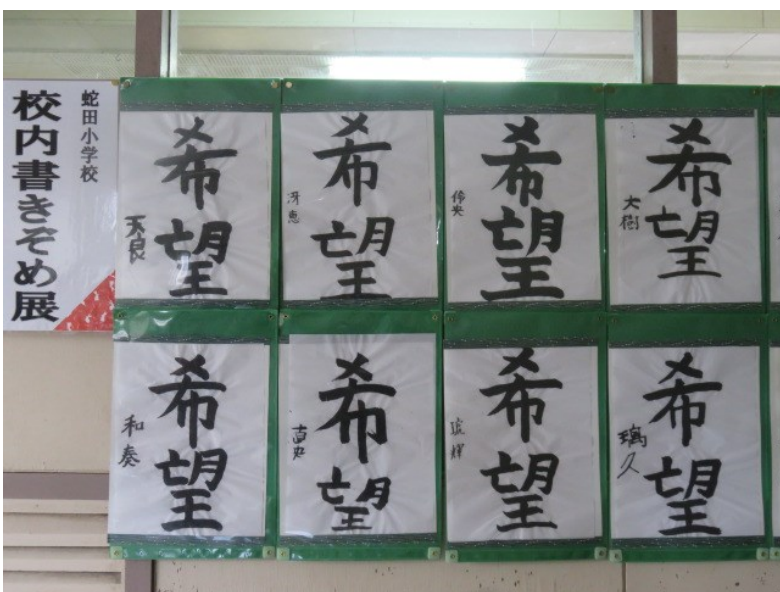 蛇田小学校
校内書きぞめ展
希望
天良
希望
冴恵
希望
希望
大樹
希望
和奏
希望
直央
希望
希望
璃久